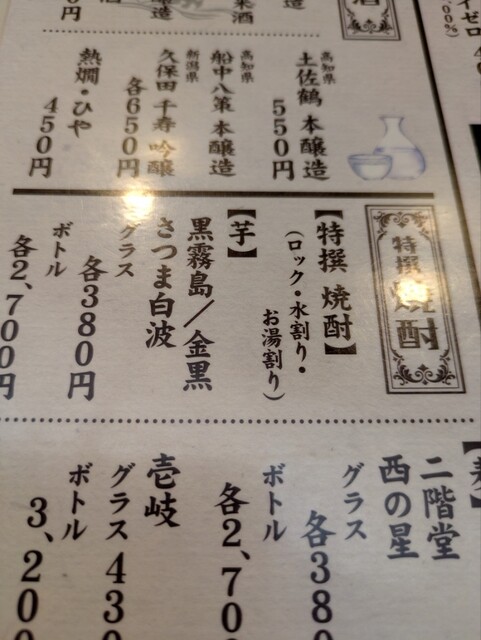 高知県
土佐鶴 本醸造
550円
高知県
船中八策 本醸造
新潟県
久保田 千寿 吟醸
各650円
熱燗・ひや
450円
特撰 焼酎
【特撰 焼酎】
(ロック・水割り・
お湯割り)
【芋】
黒霧島/金黒
さつま白波
グラス
各380円
ボトル
各2,700円
二階堂
西の星
グラス
各380
ボトル
各2,70
壱岐
グラス 430
ボトル
3,200